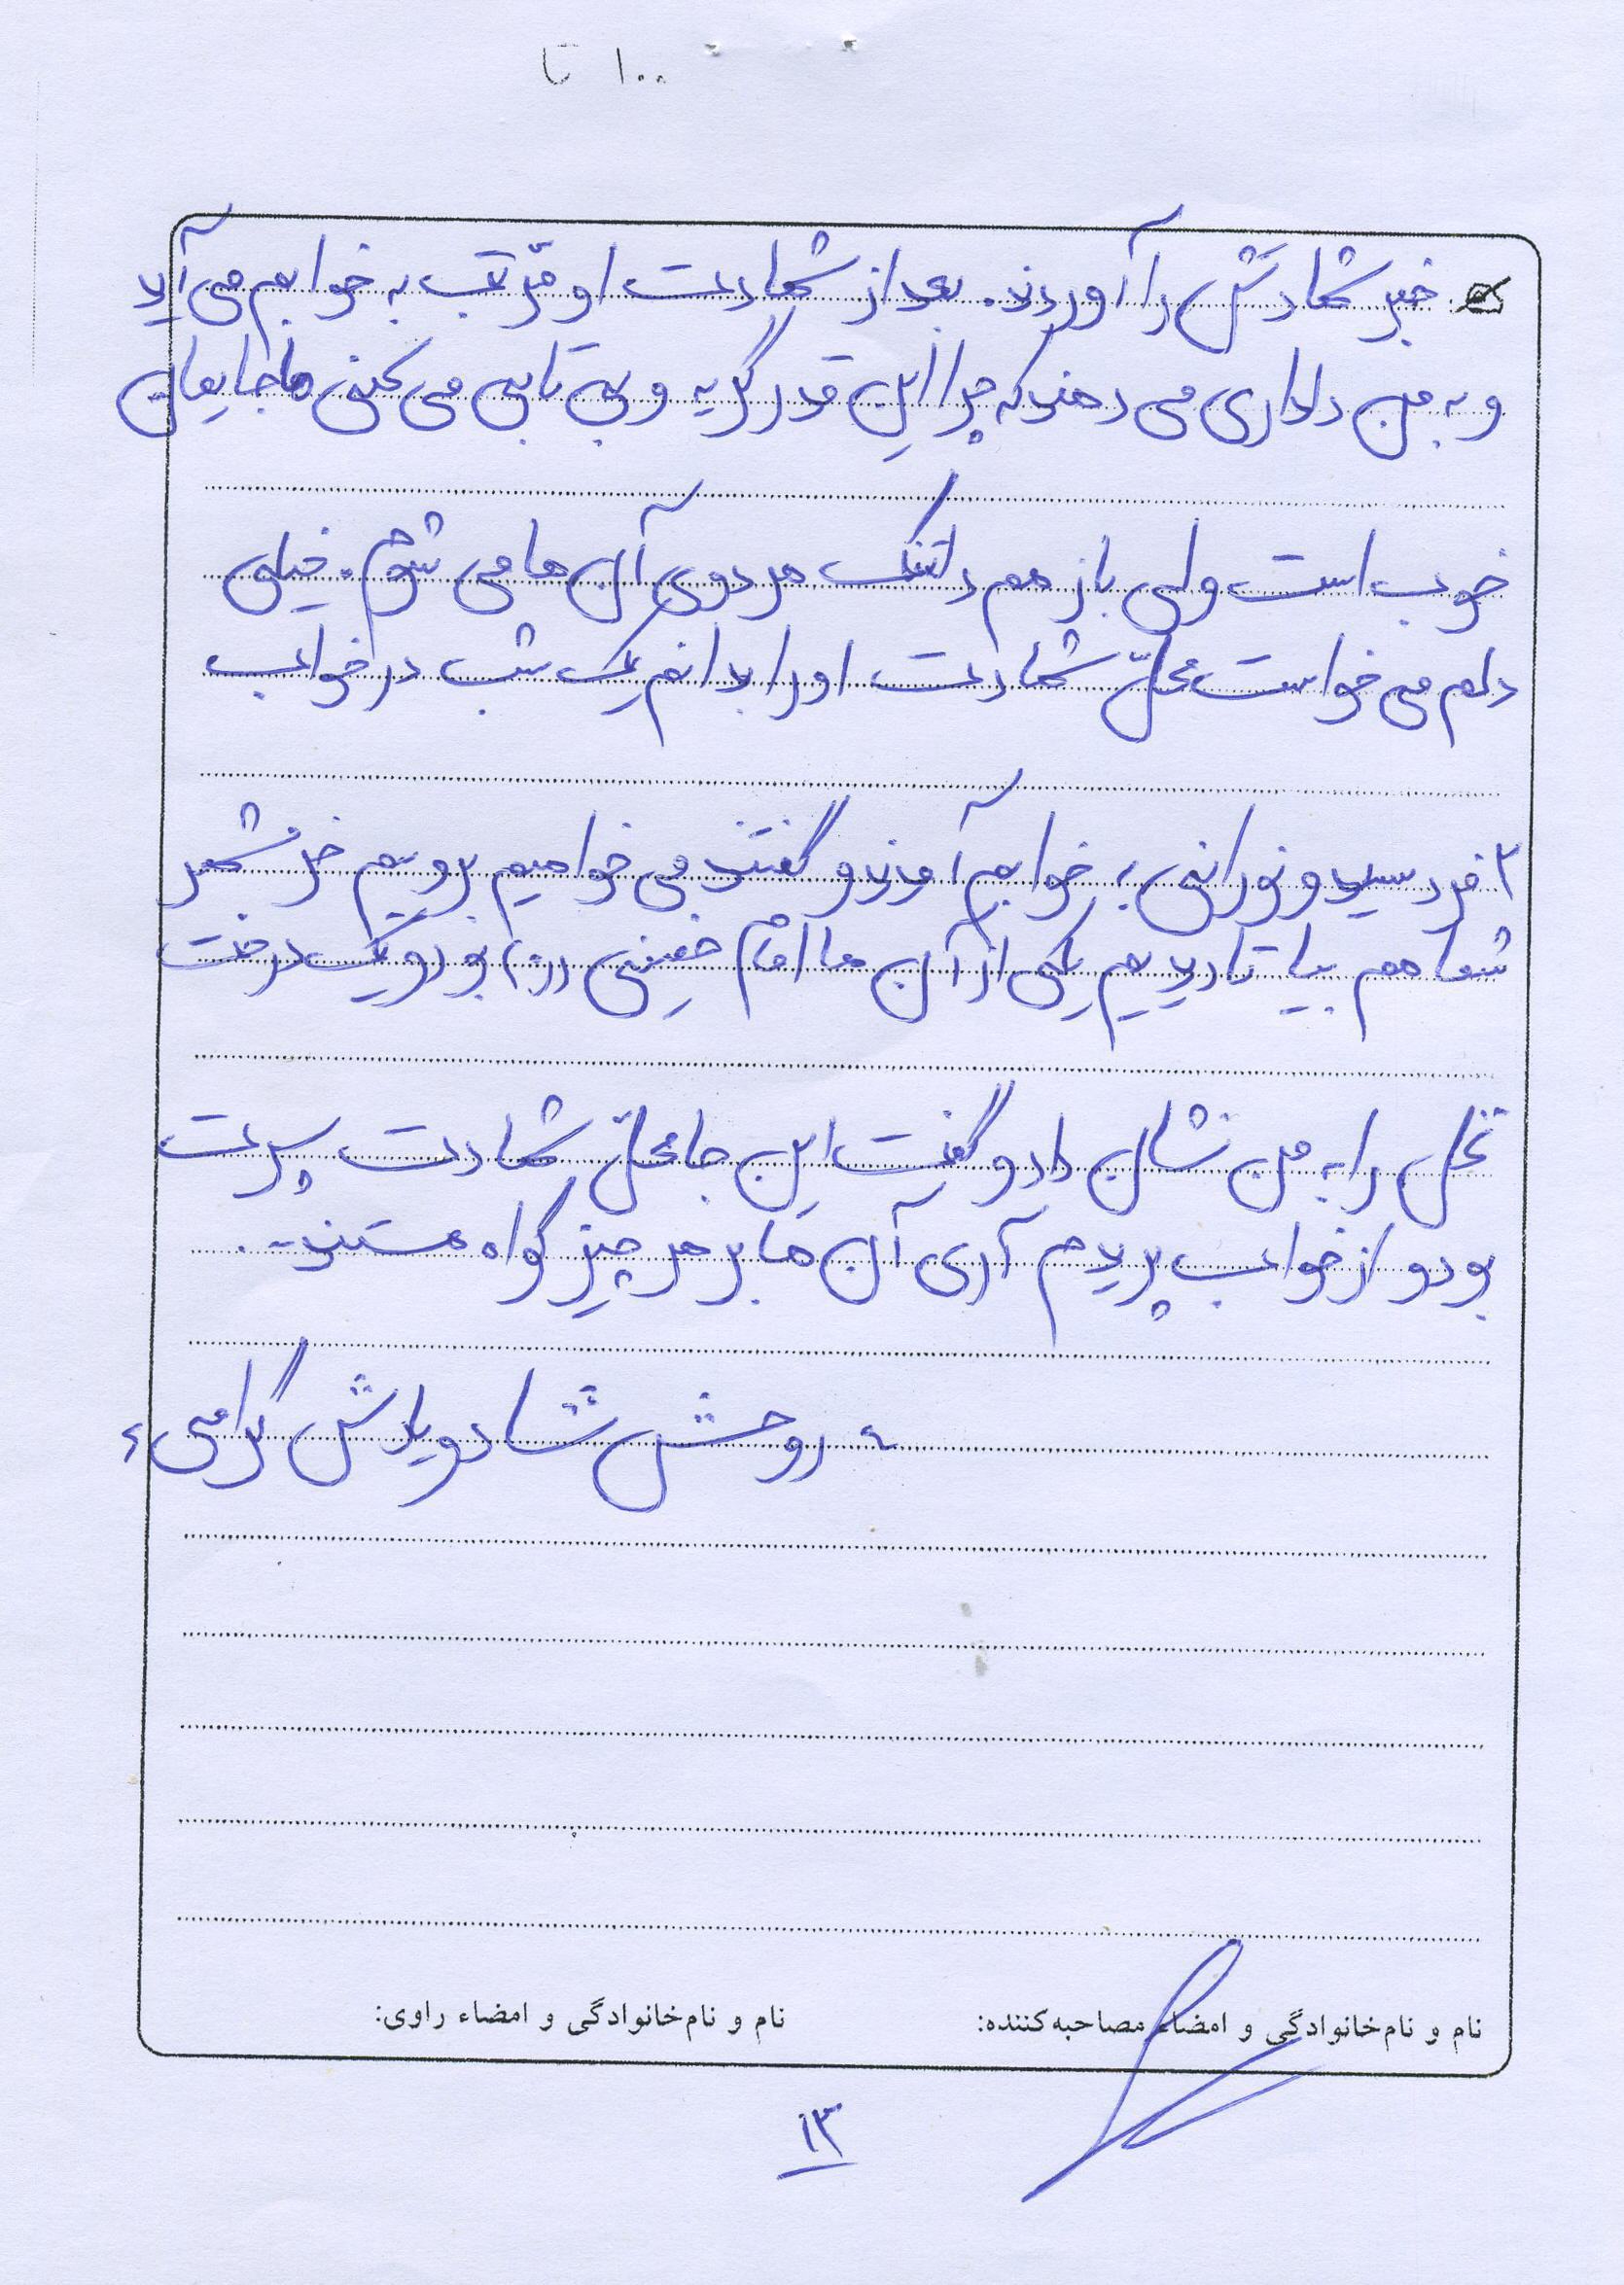 ۱۰۰ تا
خبر شهادتش را آوردند. بعد از شهادت او مرّتب به خوابم می آید
و به من دلداری می دهند که چرا این قدر گریه و بی تابی می کنی ما جایمان
خوب است ولی باز هم دلتنگ هر دوی آن ها می شوم. خیلی
دلم می خواست محلّ شهادت او را بدانم یک شب در خواب
۲ فرد سید و نورانی به خوابم آمدند و گفتند می خواهیم برویم خرمشهر
شما هم بیا تا دیدیم یکی از آن ها امام خمینی (ره) بود و یک درخت
نخل را به من نشان داد و گفت این جا محلّ شهادت پسرت
بود و از خواب پریدم آری آن ها بر هر چیز گواه هستند...
« روحش شاد و یادش گرامی »
نام و نام‌خانوادگی و امضاء مصاحبه‌کننده: نام و نام‌خانوادگی و امضاء راوی:
۱۳